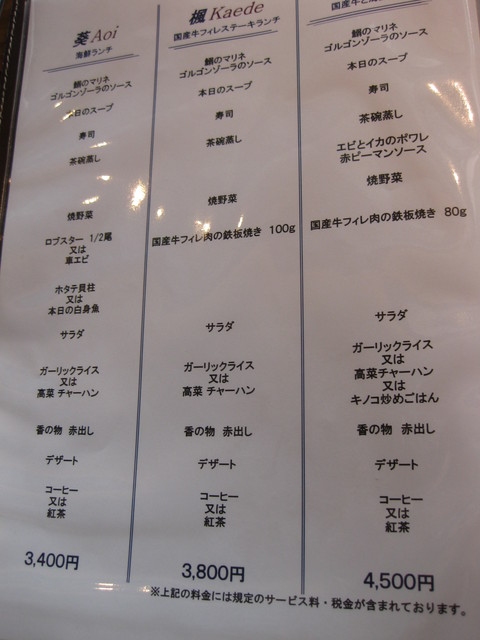 葵 Aoi
海鮮ランチ
鰯のマリネ
ゴルゴンゾーラのソース
本日のスープ
寿司
茶碗蒸し
焼野菜
ロブスター 1/2尾
又は
車エビ
ホタテ貝柱
又は
本日の白身魚
サラダ
ガーリックライス
又は
高菜 チャーハン
香の物 赤出し
デザート
コーヒー
又は
紅茶
3,400円
楓 Kaede
国産牛フィレステーキランチ
鰯のマリネ
ゴルゴンゾーラのソース
本日のスープ
寿司
茶碗蒸し
焼野菜
国産牛フィレ肉の鉄板焼き 100g
サラダ
ガーリックライス
又は
高菜 チャーハン
香の物 赤出し
デザート
コーヒー
又は
紅茶
3,800円
鰯のマリネ
ゴルゴンゾーラのソース
本日のスープ
寿司
茶碗蒸し
エビとイカのポワレ
赤ピーマンソース
焼野菜
国産牛フィレ肉の鉄板焼き 80g
サラダ
ガーリックライス
又は
高菜チャーハン
又は
キノコ炒めごはん
香の物 赤出し
デザート
コーヒー
又は
紅茶
4,500円
※上記の料金には規定のサービス料・税金が含まれております。